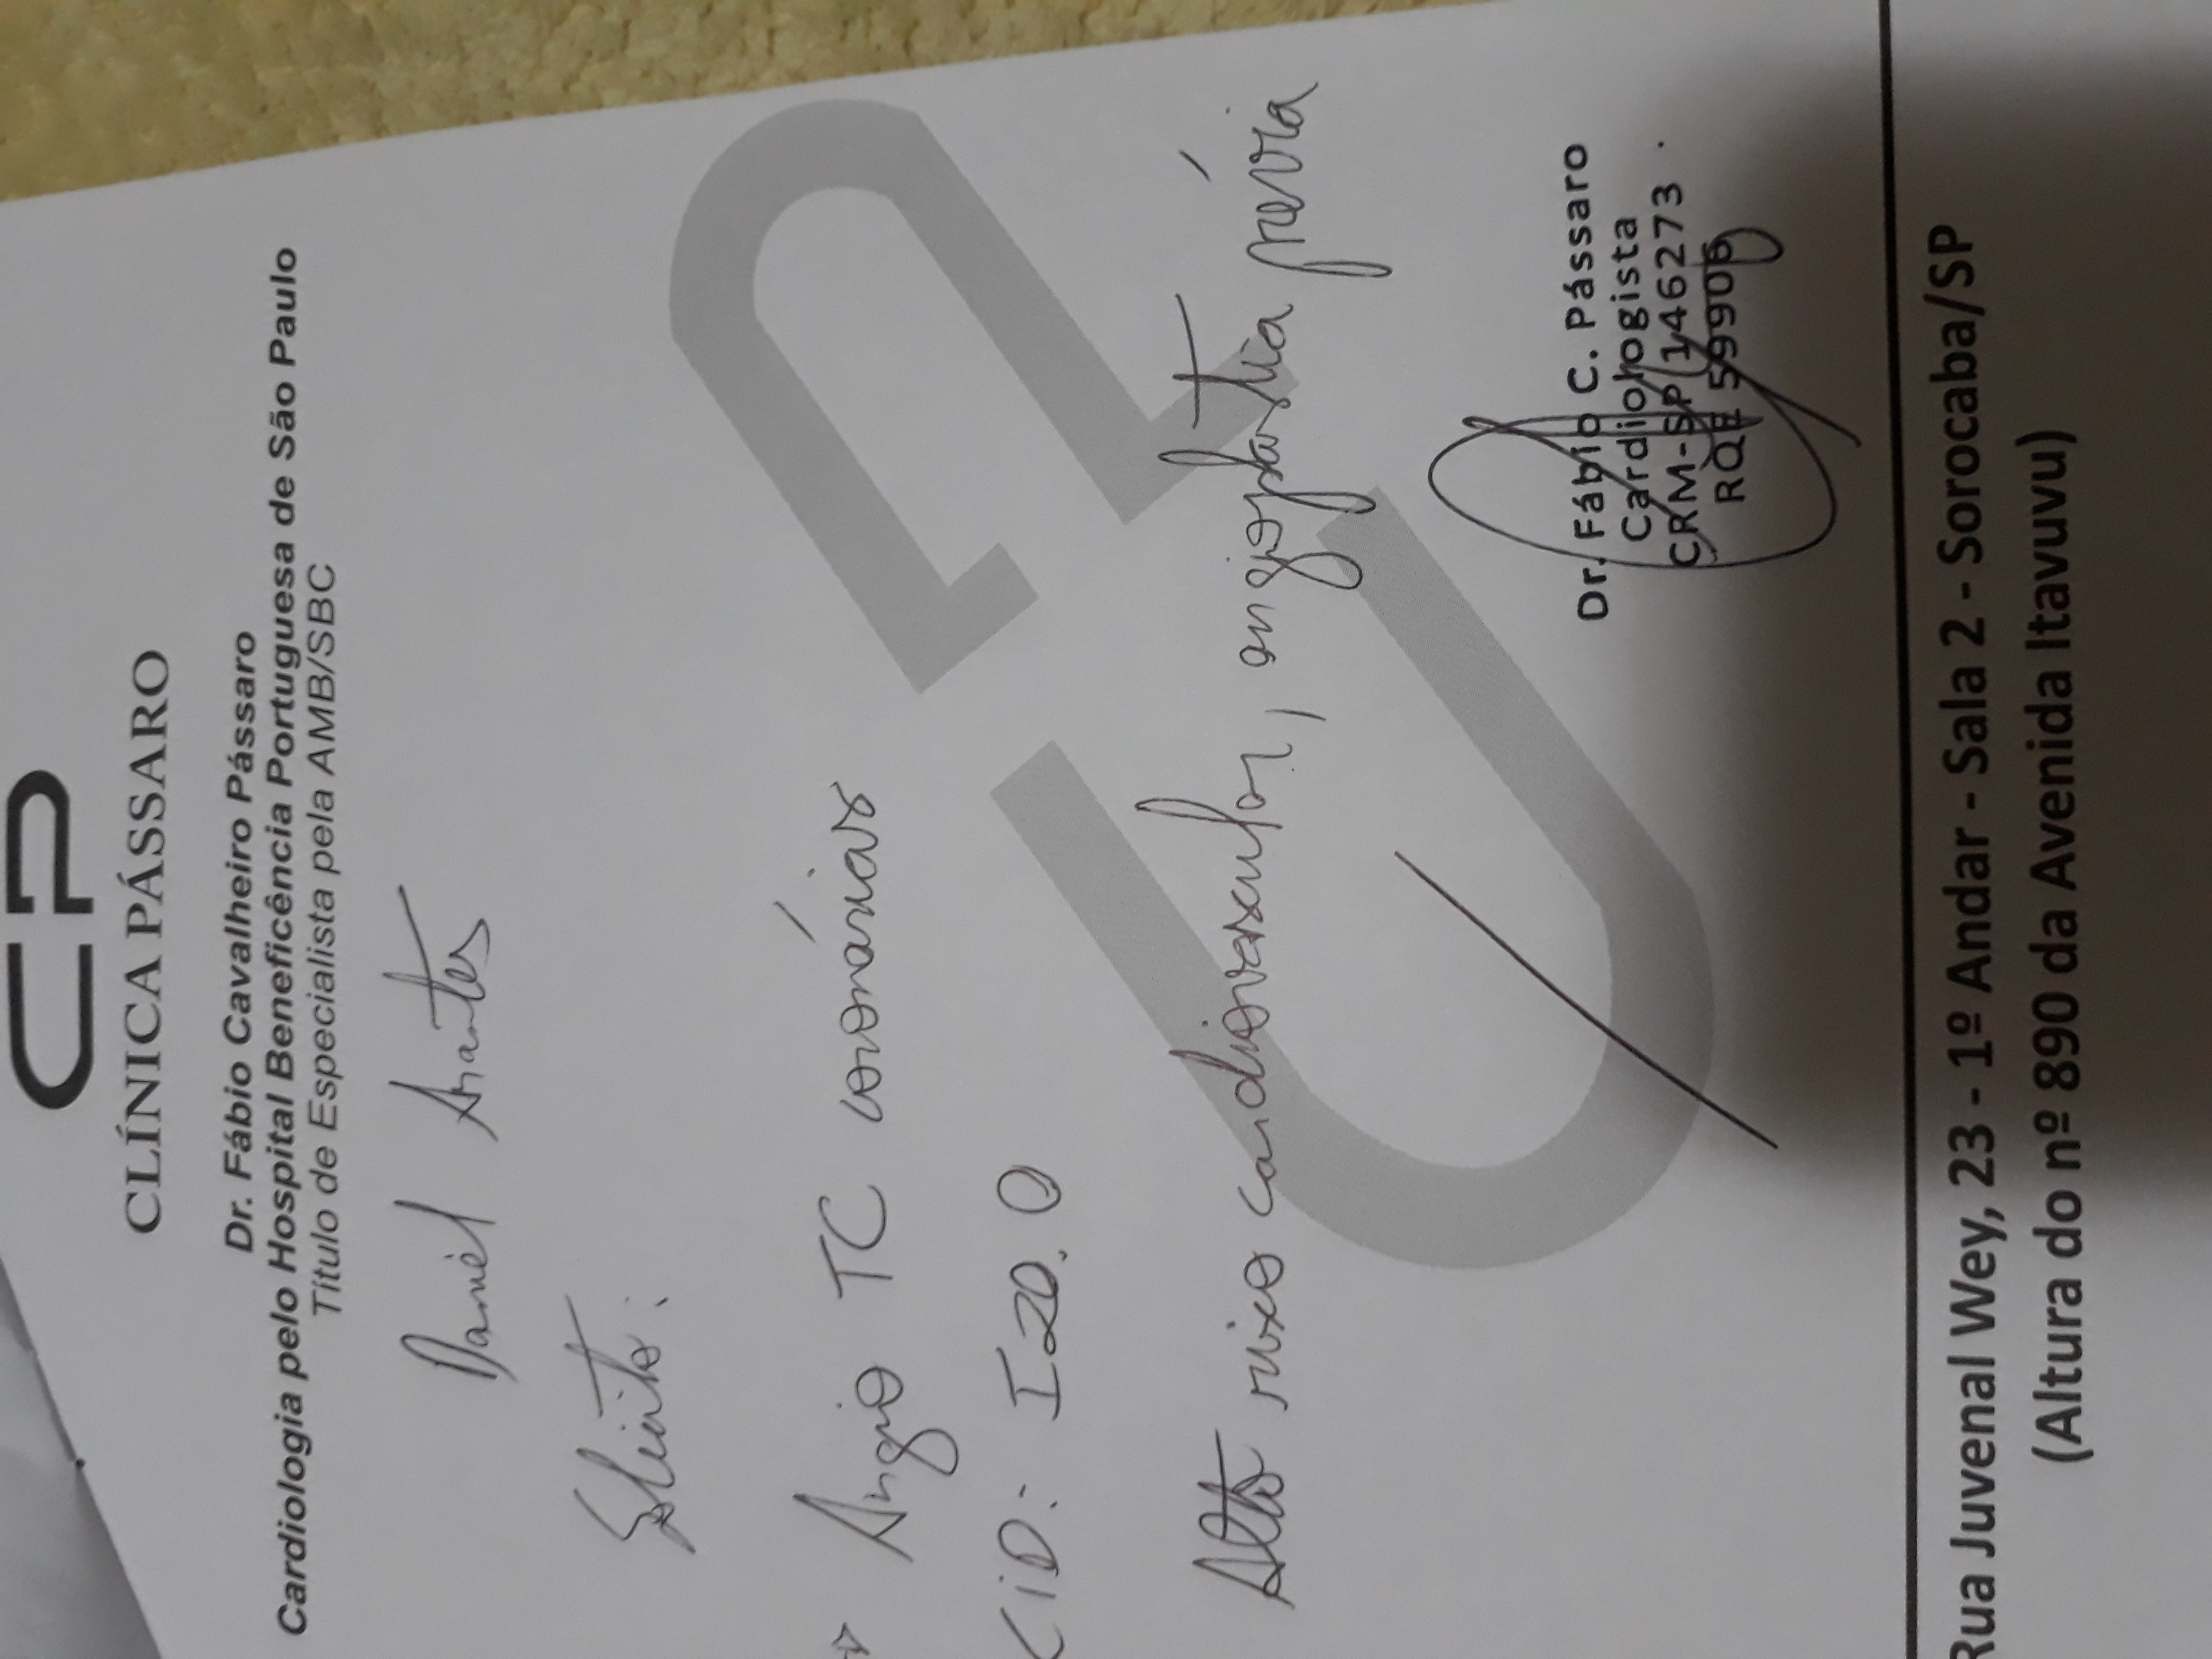 CP
CLÍNICA PÁSSARO
Dr. Fábio Cavalheiro Pássaro
Cardiologia pelo Hospital Beneficência Portuguesa de São Paulo
Título de Especialista pela AMB/SBC
Daniel Arantes
Solicito:
Angio TC coronárias
CiD: I20.0
Alto risco cardiovascular, angioplastia prévia
Dr. Fábio C. Pássaro
Cardiologista
CRM-SP 146273
RQE 59906
Rua Juvenal Wey, 23 - 1º Andar - Sala 2 - Sorocaba/SP
(Altura do nº 890 da Avenida Itavuvu)